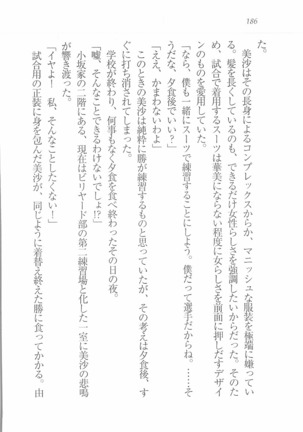 186
た。
美沙はその長身によるコンプレックスからか、マニッシュな服装を極端に嫌ってい
る。髪を長くしているのも、できるだけ女性らしさを強調したいからだった。そのた
め、試合で着用するスーツは華美にならない程度に女らしさを前面に押しだすデザイ
ンのものを愛用していた。
「なら、僕も一緒にスーツで練習することにしよう。僕だって選手だからね。……そ
うだな、夕食後でいい?」
「ええ、かまわないわ」
このときの美沙は純粋に勝が練習するものと思っていたが、その考えは夕食後、す
ぐに打ち消されてしまった。
学校が終わり、何事もなく夕食を食べ終わったその日の夜。
「嘘、そんなことできるわけないでしょ!?」
小坂家の二階にある、現在はビリヤード部の第二練習場と化した一室に美沙の悲鳴
が響き渡った。
「イヤよ! 私、そんなことしたくない」
試合用の正装に身を包んだ美沙が、同じように着替え終えた勝に食ってかかる。由